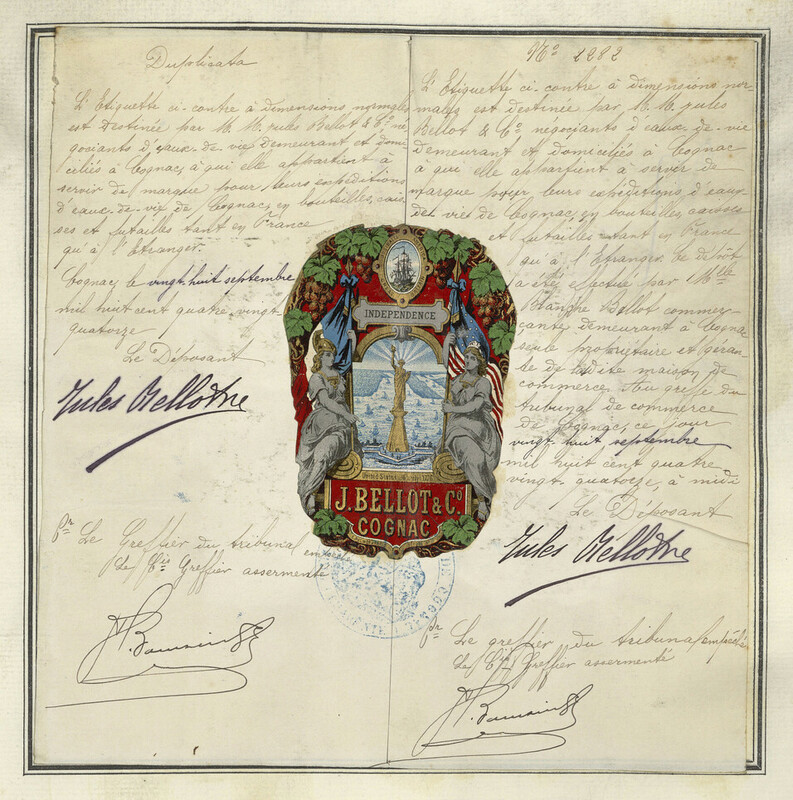 Duplicata
L'Etiquette ci-contre à dimensions normales
est destinée par M. M. Jules Bellot & Cº né-
gociants d'eaux-de-vie demeurant et domi
ciliés à Cognac, à qui elle appartient à
servir de marque pour leurs expéditions
d'eaux-de-vie de Cognac, en bouteilles, cais
ses et futailles tant en France
qu'à l'Etranger.
Cognac, le vingt huit septembre
mil huit cent quatre vingt
quatorze
Le Déposant
Jules Bellot
pr Le Greffier du tribunal empêché
Le Cis Greffier assermenté
Nº 1282
L'Etiquette ci-contre à dimensions nor-
males est destinée par M. M. Jules
Bellot & Cº négociants d'eaux-de-vie
demeurant et domiciliés à Cognac
à qui elle appartient à servir de
marque pour leurs expéditions d'eaux
de vie de Cognac, en bouteilles, caisses
et futailles tant en France
qu'à l'Etranger. Le dépôt
a été effectué par Mlle
Blanche Bellot commer
çante, demeurant à Cognac
seule propriétaire et géran
te de ladite maison de
commerce. Au greffe du
tribunal de commerce
de Cognac, ce jour
vingt huit septembre
mil huit cent quatre
vingt quatorze, à midi
Le Déposant
Jules Bellot
pr Le greffier du tribunal empêché
Le Cis Greffier assermenté
INDEPENDENCE
J. BELLOT & Cº
COGNAC